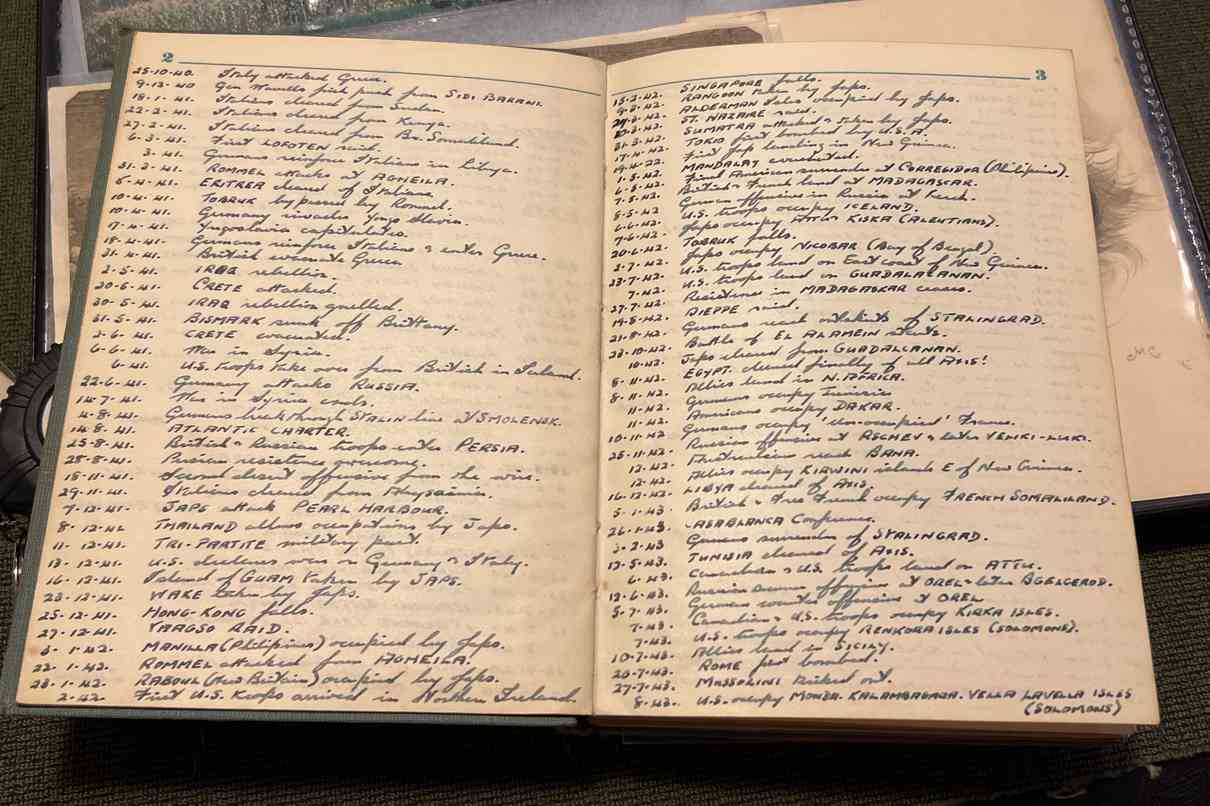 2
25-10-40. Italy attacked Greece.
9-12-40 Gen Wavells first push from SIDI BARANI
18-1-41. Italians cleared from Sudan.
22-2-41. Italians cleared from Kenya.
27-2-41. Italians cleared from Br. Somaliland.
6-3-41. First LOFOTEN raid.
3-41. Germans reinforce Italians in Libya.
31-3-41. ROMMEL attacks at AGHEILA.
6-4-41. ERITREA cleared of Italians.
10-4-41. TOBRUK by passed by Rommel.
10-4-41. Germany invades Yugo Slavia.
17-4-41. Yugoslavia capitulates.
18-4-41. Germans reinforce Italians & enter Greece.
31-4-41. British evacuate Greece
2-5-41. IRAQ rebellion.
20-5-41. CRETE attacked.
30-5-41. IRAQ rebellion quelled.
31-5-41. BISMARK sunk off Brittany.
2-6-41. CRETE evacuated.
6-6-41. War in Syria.
6-41. U.S. troops take over from British in Iceland.
22-6-41. Germany attacks RUSSIA.
14-7-41. War in Syria ends.
4-8-41. Germans break through STALIN line at SMOLENSK.
14-8-41. ATLANTIC CHARTER.
25-8-41. British & Russian troops enter PERSIA.
28-8-41. Persian resistence overcome.
18-11-41. Second desert offensive from the wire.
29-11-41. Italians cleared from Abyssinia.
7-12-41. JAPS attack PEARL HARBOUR.
8-12-41 THAILAND allows occupations by Japs.
11-12-41. TRI-PARTITE military pact.
13-12-41. U.S. declares war on Germany & Italy.
16-12-41. Island of GUAM taken by JAPS.
23-12-41. WAKE taken by Japs.
25-12-41. HONG-KONG falls.
27-12-41. VAAGSO RAID.
3-1-42. MANILLA (Philipines) occupied by Japs.
22-1-42. ROMMEL attacked from AGHEILA.
23-1-42. RABOUL (New Britain) occupied by Japs.
2-42. First U.S. troops arrived in Northern Ireland.
3
15-2-42. SINGAPORE falls.
9-3-42. RANGOON taken by Japs.
ALDERMAN Isles occupied by Japs.
ST. NAZAIRE raid.
SUMATRA attacked & taken by Japs.
TOKIO first bombed by U.S.A.
First Jap landing in New Guinea.
1-5-42. MANDALAY evacuated.
6-5-42. Final American surrender at CORREGIDOR (Philipines).
7-5-42. British & French land at MADAGASCAR.
German offensive in Russia at Kerch.
8-5-42. U.S. troops occupy ICELAND.
6-6-42. Japs occupy KISKA (ALEUTIANS).
20-6-42. TOBRUK falls.
2-7-42. Japs occupy NICOBAR (Bay of Bengal)
23-7-42. U.S. troops land on East coast of New Guinea.
7-42. U.S. troops land on GUADALACANAN.
27-7-42. Resistence in MADAGASKAR ceases.
19-8-42. DIEPPE raid.
21-8-42. Germans reach outskirts of STALINGRAD.
23-10-42. Battle of EL ALAMEIN starts.
10-42. Japs cleared from GUADALCANAN.
8-11-42. EGYPT. cleared finally of all AXIS!
8-11-42. Allies land in N. AFRICA.
11-42. Germans occupy Tunisia
11-42. Americans occupy DAKAR.
10-11-42. Germans occupy 'un-occupied' France.
25-11-42. Russian offensive at RSCHEV & later VELIKI-LUKI.
12-42. Australians reach BANA.
12-42. Allies occupy KIRWINI islands E of New Guinea.
16-12-42. LIBYA cleared of Axis.
5-1-43. British & Free French occupy FRENCH SOMALILAND.
26-1-43. CASABLANCA Conference.
3-2-43 Germans surrender at STALINGRAD.
13-5-43. TUNISIA cleared of Axis.
6-43. Canadian & U.S. troops land on ATTU.
12-6-43. Russian summer offensive at OREL & later BGELGEROD.
5-7-43. German counter offensive at OREL
7-43. Canadian & U.S. troops occupy KIRKA ISLES.
7-43. U.S. troops occupy RENKORA ISLES (SOLOMONS).
10-7-43. Allies land in SICILY.
20-7-43. ROME first bombed.
27-7-43. MUSSOLINI kicked out.
8-43. U.S. occupy MONDA. KALAMBAGARA. VELLA LAVELLA ISLES
(SOLOMONS)